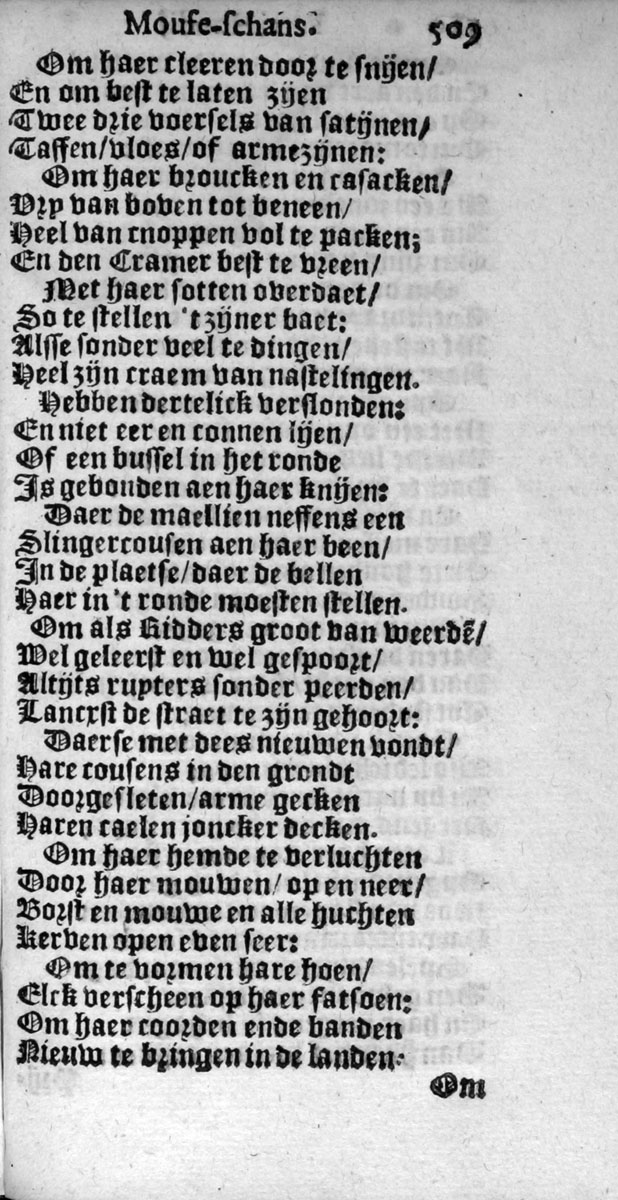 Mouse-schans. 509
Om haer cleeren door te snijen/
En om best te laten zijen
Twee drie voersels van satijnen/
Taffen/vloes/of armezijnen:
Om haer broucken en casacken/
Vry van boven tot beneen/
Heel van cnoppen vol te packen;
En den Cramer best te vreen/
Met haer sotten overdaet/
So te stellen 't zijner baet:
Alsse sonder veel te dingen/
Heel zijn craem van nastelingen.
Hebben dertelick verslonden:
En niet eer en connen lijen/
Of een bussel in het ronde
Is gebonden aen haer knijen:
Daer de maellien neffens een
Slingercousen aen haer been/
In de plaetse/daer de bellen
Haer in 't ronde moesten stellen.
Om als Ridders groot van weerdẽ/
Wel geleerst en wel gespoort/
Altijts ruyters sonder peerden/
Lancxst de straet te zijn gehoort:
Daerse met dees nieuwen vondt/
Hare cousens in den grondt
Doorgesleten/arme gecken
Haren caelen joncker decken.
Om haer hemde te verluchten
Door haer mouwen/ op en neer/
Borst en mouwe en alle huchten
Kerven open even seer:
Om te vormen hare hoen/
Elck verscheen op haer fatsoen:
Om haer coorden ende banden
Nieuw te bringen in de landen.
Om